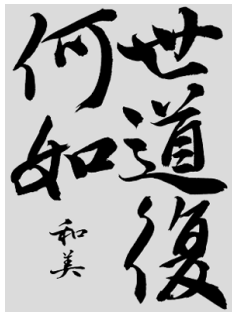 世道復
何如
和美